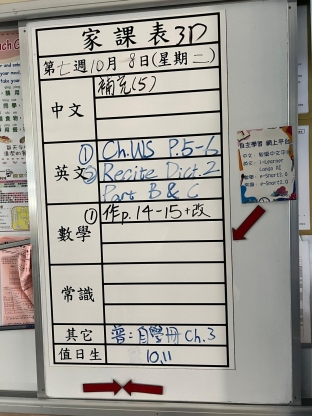 家課表 3D
第七週10月8日(星期二)
中文
補充(5)
英文
① Ch.WS P.5-6
② Recite Dict.2
Part B & C
數學
① 作p.14-15+改
常識
其它
普:自學冊 Ch.3
值日生
10,11
自主學習 網上平台